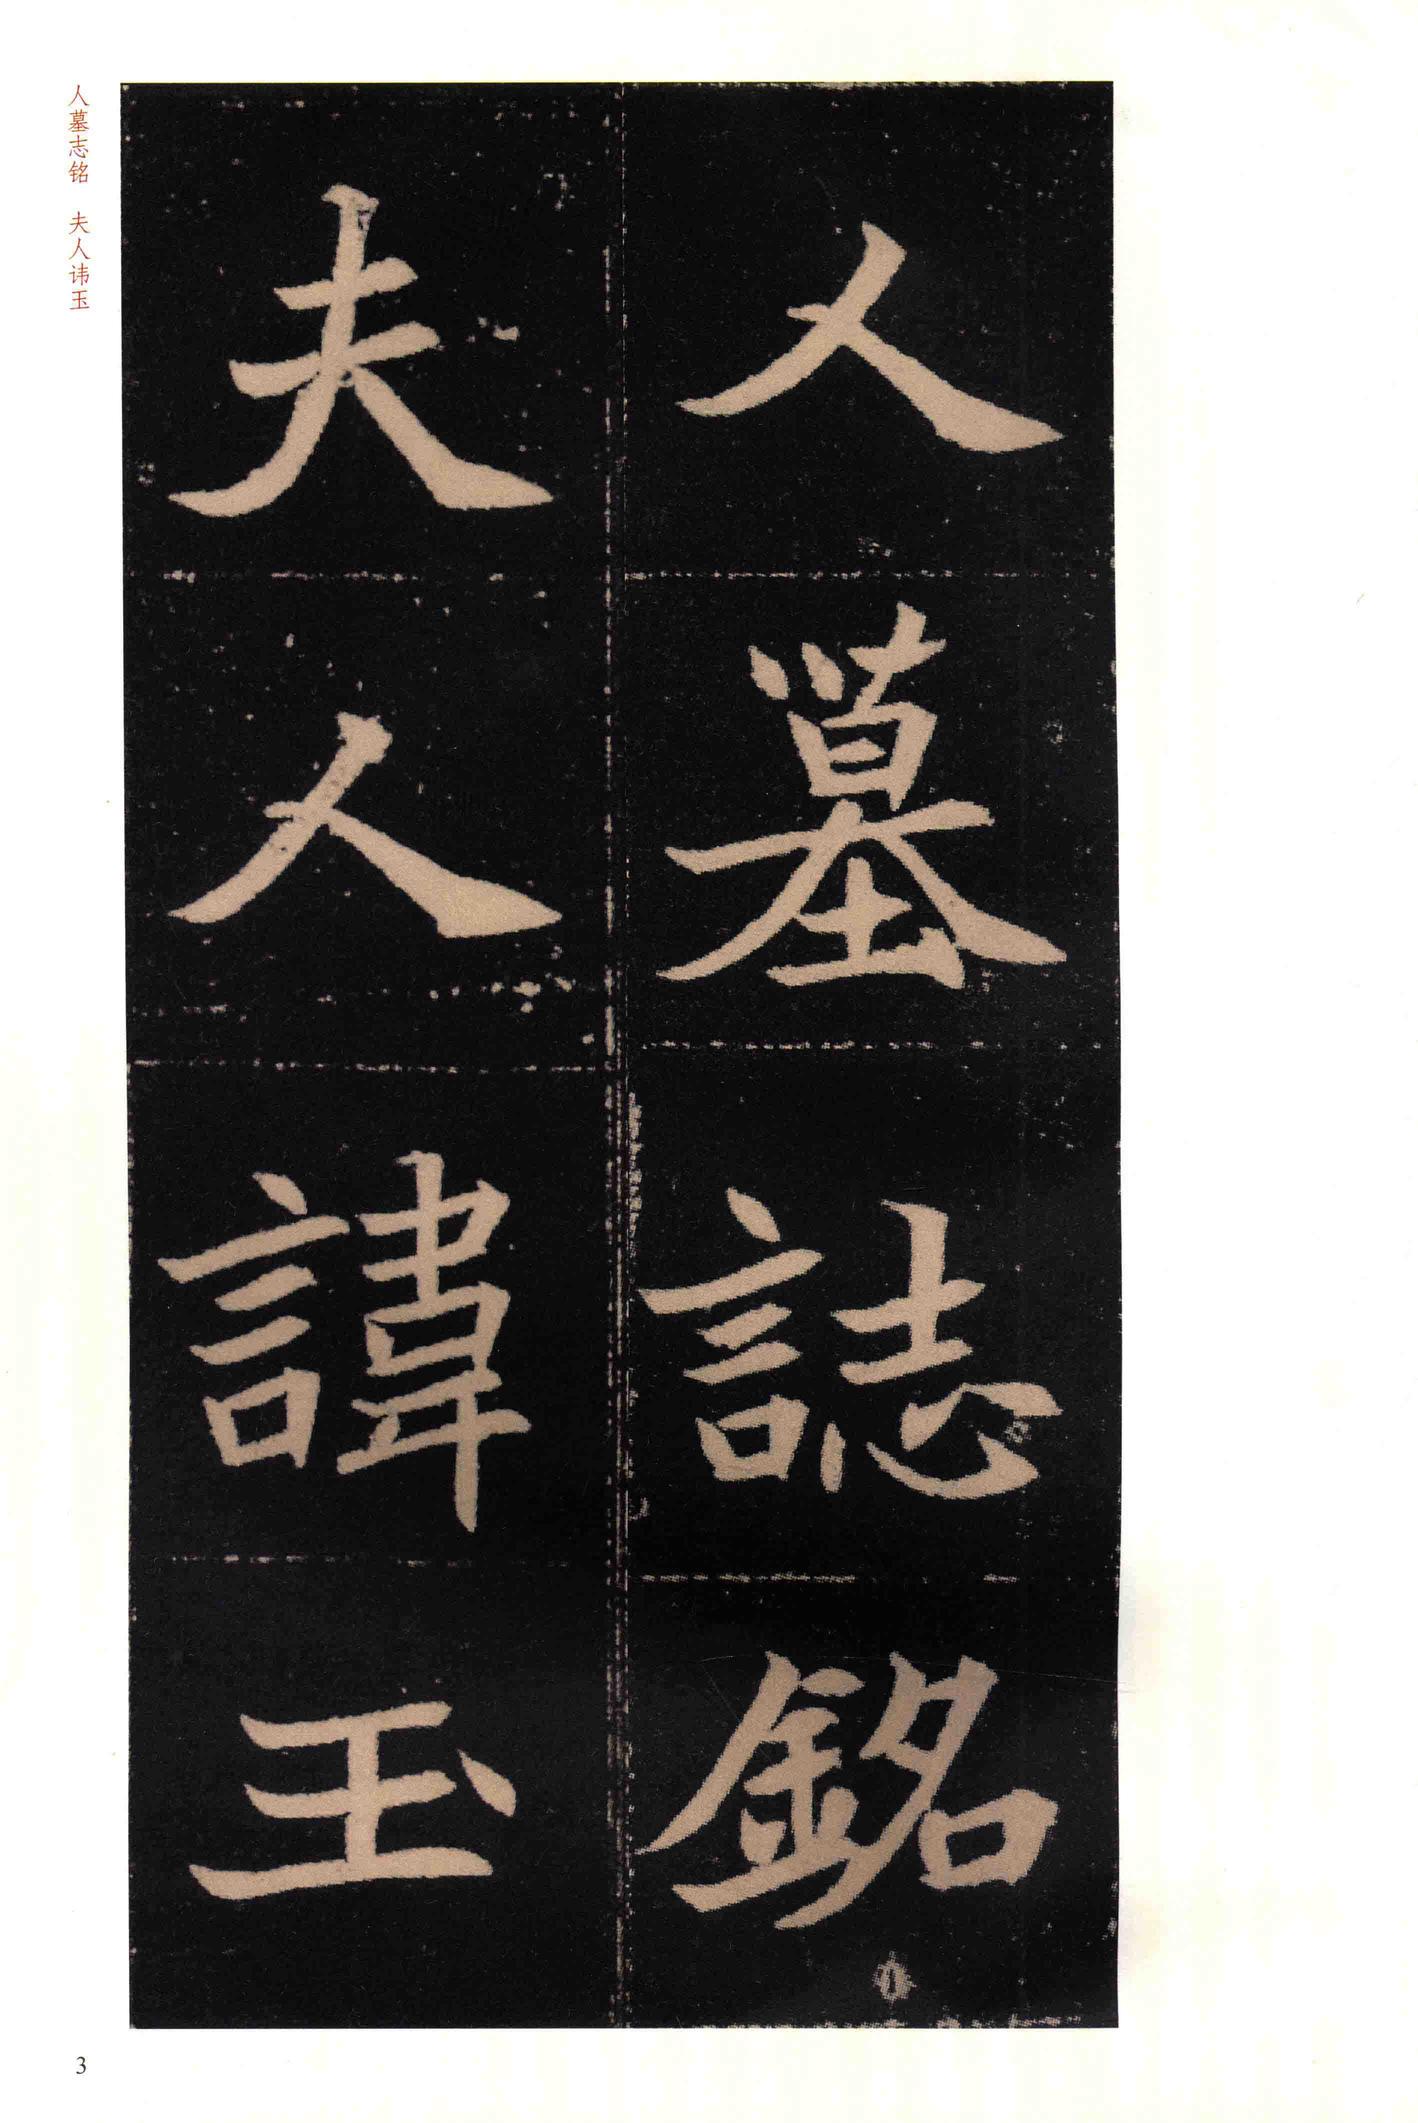 人墓誌銘
夫人諱玉
人墓志铭　夫人讳玉
3